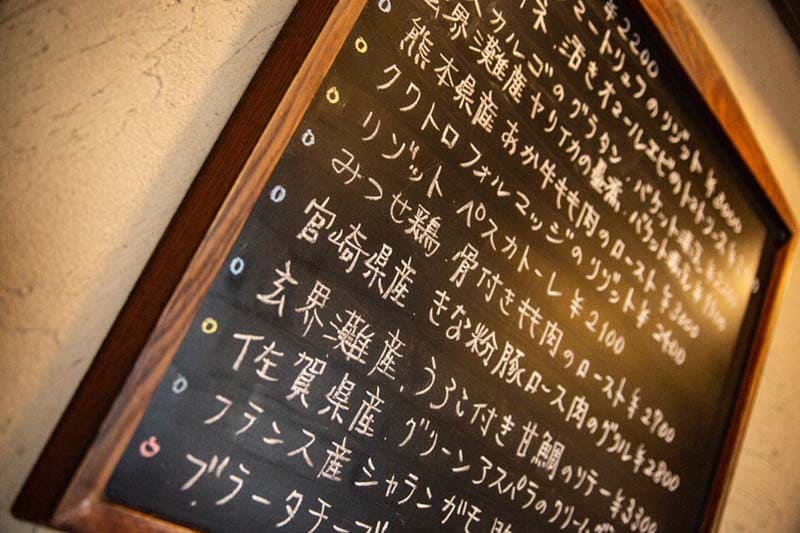 ¥2200
ミートリュフのリゾット ¥3000
ネ、活きオマールエビのトマトソース ¥
カルゴのグラタン、バケット添え ¥2200
玄界灘産ヤリイカの墨煮、バケット添え ¥1500
熊本県産 あか牛もも肉のロースト ¥3000
クワトロフォルマッジのリゾット ¥2400
リゾット ペスカトーレ ¥2100
みつせ鶏 骨付きもも肉のロースト ¥2700
宮崎県産 きな粉豚ロース肉のグリル ¥2800
玄界灘産、うろこ付き甘鯛のソテー ¥3300
佐賀県産、グリーンアスパラのクリーム
フランス産シャランがモ
ブラータチーズ